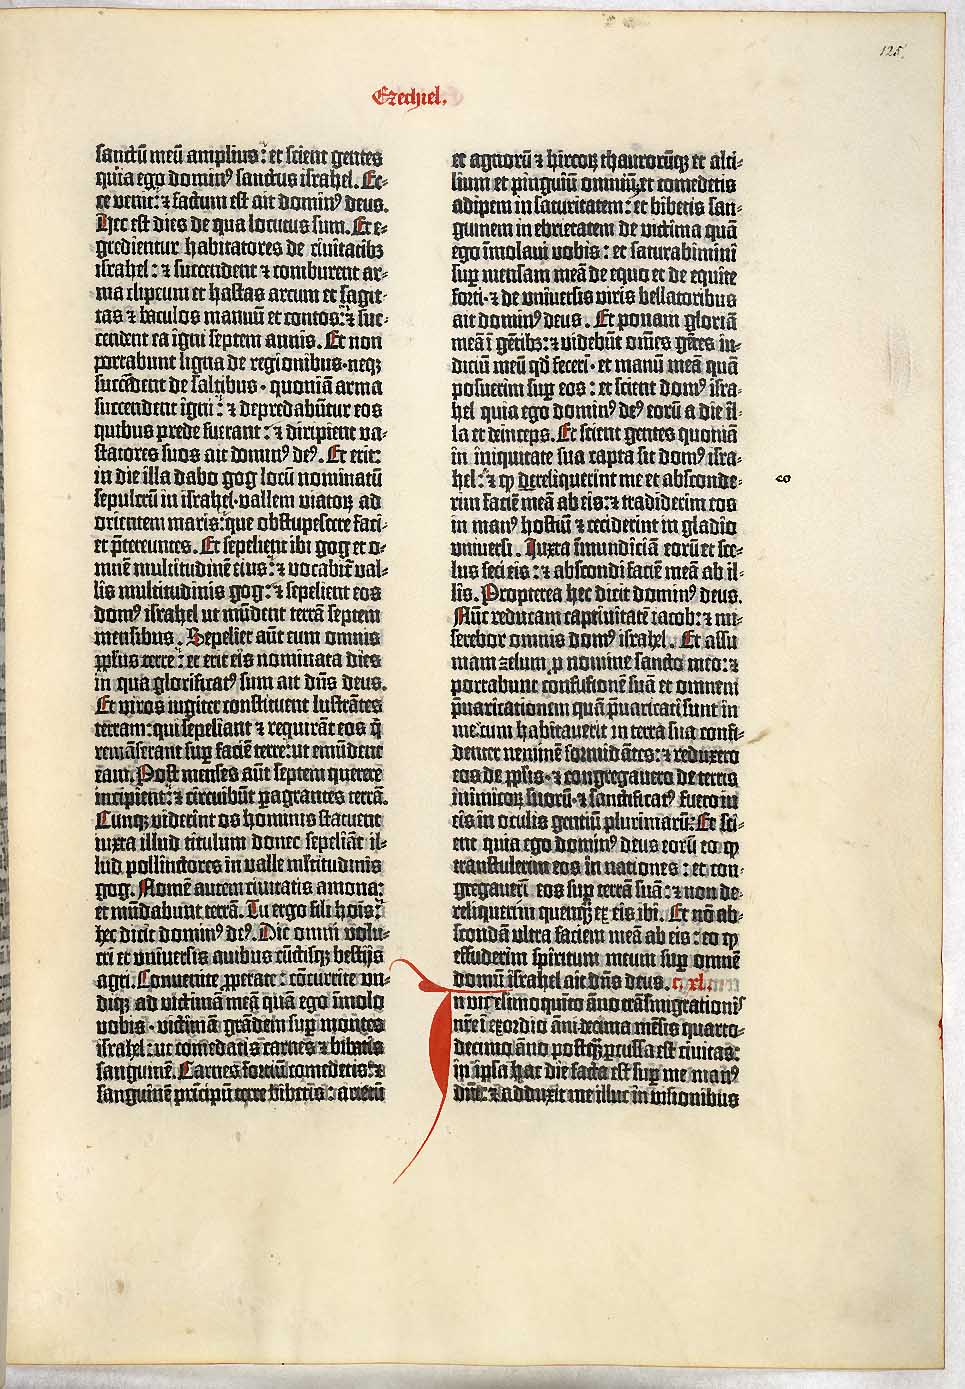 125.
Ezechiel.
sanctū meū amplius: et scient gentes
quia ego dominꝰ sanctus israhel. Ec-
ce venit: ⁊ factum est ait dominꝰ deus.
Hec est dies de qua locutus sum. Et e-
gredientur habitatores de civitatibꝫ
israhel: ⁊ succendent ⁊ comburent ar-
ma clipeum et hastas arcum et sagit-
tas ⁊ baculos manuū et contos: ⁊ suc-
cendent ea igni septem annis. Et non
portabunt ligna de regionibus · neqꝫ
succēdent de saltibus · quoniā arma
succendent igni: ⁊ depredabūtur eos
quibus prede fuerant: ⁊ diripient va-
statores suos ait dominꝰ deꝰ. Et erit:
in die illa dabo gog locū nominatū
sepulcrū in israhel · vallem viatoꝝ ad
orientem maris: que obstupescere faci-
et p̄tereuntes. Et sepelient ibi gog et o-
mnē multitudinē eius: ⁊ vocabit̄ val-
lis multitudinis gog: ⁊ sepelient eos
domꝰ israhel ut mūdent terrā septem
mensibus. Sepeliet aūt eum omnis
ꝓpłus terre: et erit eis nominata dies
in qua glorificatꝰ sum ait dn̄s deus.
Et viros iugiter constituent lustrātes
terram: qui sepeliant ⁊ requirāt eos q̄
remāserant suꝑ faciē terre: ut emūdent
eam. Post menses aūt septem querere
incipient: ⁊ circuibūt ꝑagrantes terrā.
Cunqꝫ viderint os hominis statuent
iuxta illud titulum donec sepeliāt il-
lud pollinctores in valle multitudinis
gog. Nomē autem civitatis amona:
et mūdabunt terrā. Tu ergo fili hoīs:
hec dicit dominꝰ deꝰ. Dic omni volu-
cri et universis avibus cūctisqꝫ bestijs
agri. Convenite ꝓperate: cōcurrite un-
diqꝫ ad victimā meā quā ego īmolo
vobis · victimā grādem suꝑ montes
israhel: ut comedatis carnes ⁊ bibatis
sanguinē. Carnes fortiū comedetis: ⁊
sanguinē principū terre bibetis: arietū
et agnorū ⁊ hircoꝝ thaurorūqꝫ et alti-
lium et pinguiū omniū: et comedetis
adipem in saturitatem: et bibetis san-
guinem in ebrietatem de victima quā
ego īmolavi vobis: et saturabimini
suꝑ mensam meā de equo et de equite
forti · ⁊ de universis viris bellatoribus
ait dominꝰ deus. Et ponam gloriā
meā ī gētibꝫ: ⁊ videbūt om̄es gētes iu-
diciū meū qđ fecerī · et manū meā quā
posuerim suꝑ eos: et scient domꝰ isra-
hel quia ego dominꝰ deꝰ eorū a die il-
la et deinceps. Et scient gentes quoniā
in iniquitate sua capta sit domꝰ isra-
hel: ⁊ ꝙ dereliquerint me et absconde-
rim faciē meā ab eis: ⁊ tradiderim eos
eo
in manꝰ hostiū ⁊ ceciderint in gladio
universi. Iuxta īmundiciā eorū et sce-
lus feci eis: ⁊ abscondi faciē meā ab il-
lis. Propterea hec dicit dominꝰ deus.
Nūc reducam captivitatē iacob: ⁊ mi-
serebor omnis domꝰ israhel. Et assu
mam zelum ꝓ nomine sancto meo: ⁊
portabunt confusionē suā et omnem
p̄varicationem quā p̄varicati sunt in
me: cum habitaverit in terra sua confi-
denter neminē formidātes: ⁊ reduxero
eos de ꝓpłis · ⁊ congregavero de terris
inimicoꝝ suorū · ⁊ sanctificatꝰ fuero in
eis in oculis gentiū plurimarū: Et sci-
ent quia ego dominꝰ deus eorū eo ꝙ
transtulerim eos in nationes: et con-
gregaveri eos suꝑ terrā suā: ⁊ non de-
reliquerim quenqꝫ ex eis ibi. Et nō ab-
scondā ultra faciem meā ab eis: eo ꝙ
effuderim spiritum meum suꝑ omnē
domū israhel ait dn̄s deus. c. xl.
In vicesimo quīto āno trāsmigrationis
nr̄e ī exordio āni decima mēsis quarto-
decimo āno postqꝫ ꝑcussa est civitas:
in ipsa hac die facta est suꝑ me manꝰ
dn̄i: ⁊ adduxit me illuc in visionibus